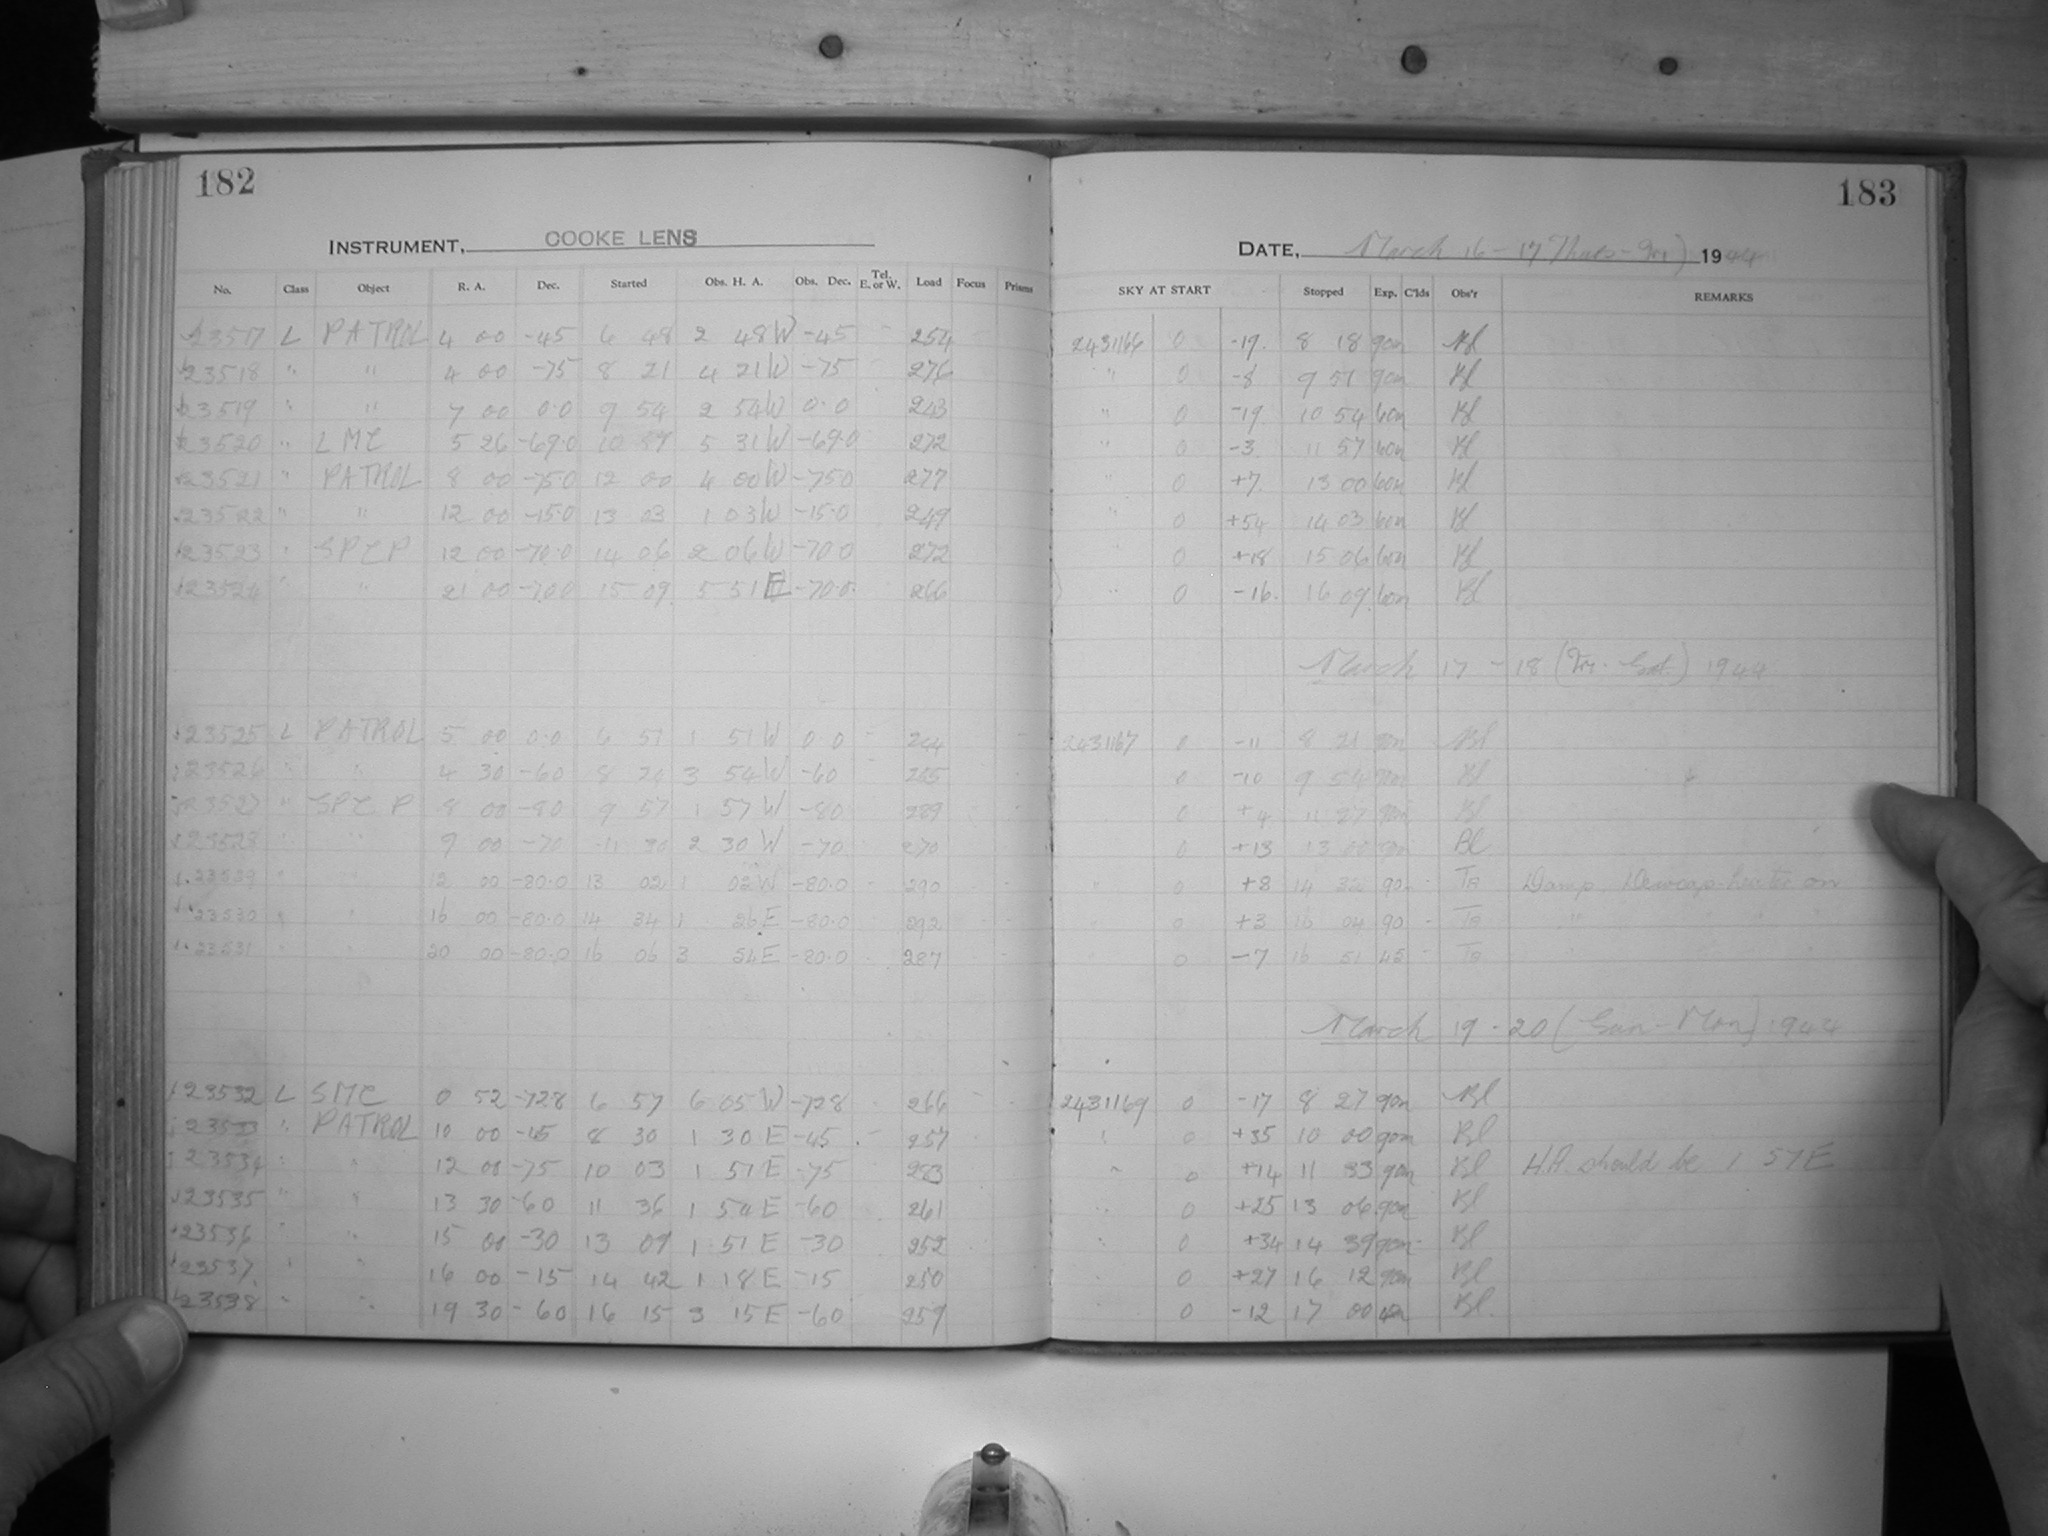 182
183
INSTRUMENT, COOKE LENS
DATE, March 16-17 Thurs-Fri) 1944
No. Class Object R. A. Dec. Started Obs. H. A. Obs. Dec. Tel. E. or W. Load Focus Prisms SKY AT START Stopped Exp. C'lds Obs'r REMARKS
23517 L PATROL 4 00 -45 6 48 2 48W -45 254 2431166 0 -19. 8 18 90m Bl
23518 " " 4 00 -75 8 21 4 21W -75 276 " 0 -8 9 51 90m Bl
23519 " " 7 00 0.0 9 54 2 54W 0.0 243 " 0 -19 10 54 60m Bl
23520 " LMC 5 26 -69.0 10 57 5 31W -69.0 272 " 0 -3 11 57 60m Bl
23521 " PATROL 8 00 -75.0 12 00 4 00W -75.0 277 " 0 +7. 13 00 60m Bl
23522 " " 12 00 -15.0 13 03 1 03W -15.0 249 0 +54 14 03 60m Bl
23523 " SPCP 12 00 -70.0 14 06 2 06W -70.0 272 0 +18 15 06 60m Bl
23524 " " 21 00 -70.0 15 09 5 51E -70.0 266 " 0 -16. 16 09 60m Bl
March 17 - 18 (Fri. Sat.) 1944
23525 L PATROL 5 00 0.0 6 51 1 51W 0.0 244 2431167 0 -11 8 21 90m Bl
23526 " " 4 30 -60 8 24 3 54W -60 0 -10 9 54 90m Bl
23527 " SPCP 8 00 -80 9 57 1 57W -80 289 0 +4 11 27 90m Bl
23528 " 9 00 -70 11 30 2 30W -70 270 0 +13 13 00 90m Bl
23529 " " 12 00 -80.0 13 02 1 02W -80.0 290 " 0 +8 14 32 90 - Ta Damp. Dewcap-heater on
23530 " " 16 00 -80.0 14 34 1 26E -80.0 292 0 +3 16 04 90 - Ta "
23531 " 20 00 -80.0 16 06 3 54E -80.0 287 0 -7 16 51 45 - Ta
March 19 - 20 (Sun - Mon) 1944
23532 L SMC 0 52 -72.8 6 57 6 05W -72.8 266 2431169 0 -17 8 27 90m Bl
23533 " PATROL 10 00 -45 8 30 1 30E -45 257 " 0 +35 10 00 90m Bl
23534 " " 12 00 -75 10 03 1 51E -75 283 " 0 +14 11 33 90m Bl H.A. should be 1 57E
23535 " " 13 30 -60 11 36 1 54E -60 261 " 0 +25 13 06 90m Bl
23536 " " 15 00 -30 13 09 1 51E -30 252 " 0 +34 14 39 90m Bl
23537 " " 16 00 -15 14 42 1 18E -15 250 " 0 +27 16 12 90m Bl
23538 " " 19 30 -60 16 15 3 15E -60 259 " 0 -12 17 00 Bl.